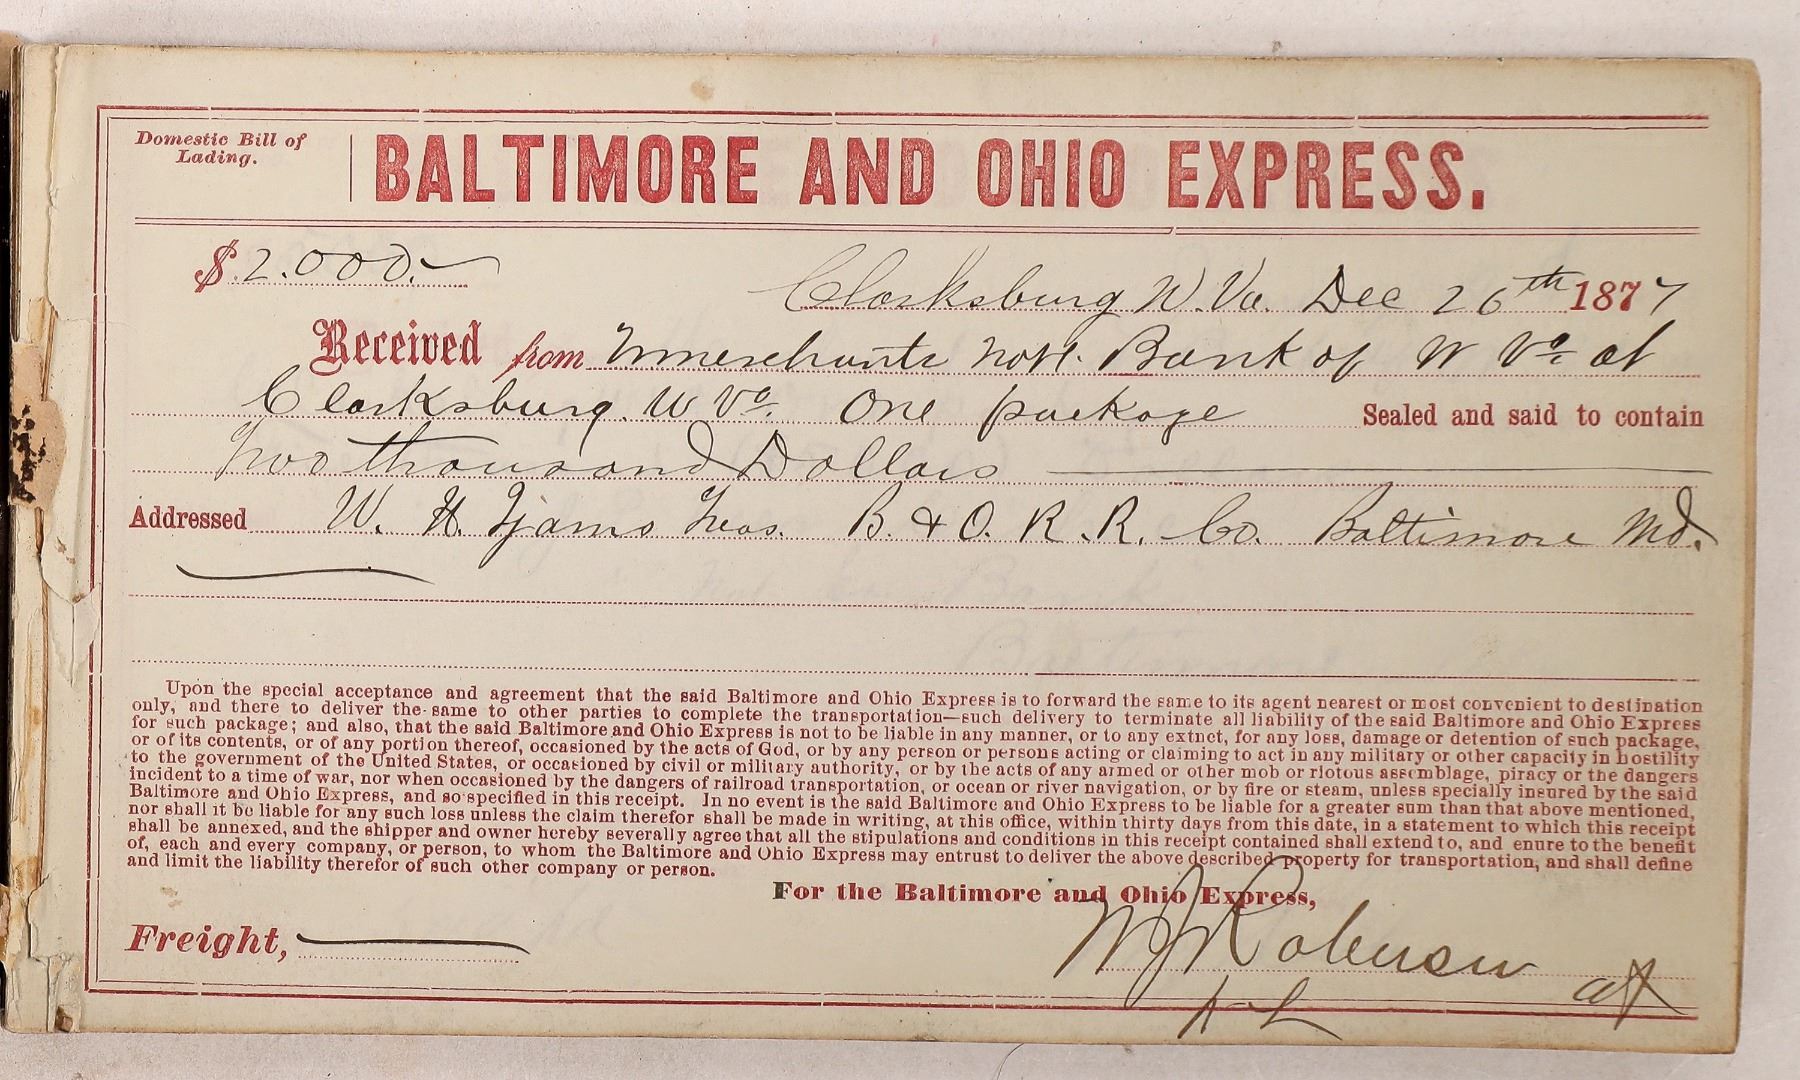 Domestic Bill of
Lading.
BALTIMORE AND OHIO EXPRESS.
$ 2.000.
Clarksburg W. Va. Dec 26th 1877
Received from Merchants Natl. Bank of W Va at
Clarksburg. W Va. One package Sealed and said to contain
Two thousand Dollars
Addressed W. H. Ijams Treas. B. & O. R. R. Co. Baltimore Md.
Upon the special acceptance and agreement that the said Baltimore and Ohio Express is to forward the same to its agent nearest or most convenient to destination
only, and there to deliver the same to other parties to complete the transportation—such delivery to terminate all liability of the said Baltimore and Ohio Express
for such package; and also, that the said Baltimore and Ohio Express is not to be liable in any manner, or to any extnct, for any loss, damage or detention of such package,
or of its contents, or of any portion thereof, occasioned by the acts of God, or by any person or persons acting or claiming to act in any military or other capacity in hostility
to the government of the United States, or occasioned by civil or military authority, or by the acts of any armed or other mob or riotous assemblage, piracy or the dangers
incident to a time of war, nor when occasioned by the dangers of railroad transportation, or ocean or river navigation, or by fire or steam, unless specially insured by the said
Baltimore and Ohio Express, and so specified in this receipt. In no event is the said Baltimore and Ohio Express to be liable for a greater sum than that above mentioned,
nor shall it be liable for any such loss unless the claim therefor shall be made in writing, at this office, within thirty days from this date, in a statement to which this receipt
shall be annexed, and the shipper and owner hereby severally agree that all the stipulations and conditions in this receipt contained shall extend to, and enure to the benefit
of, each and every company, or person, to whom the Baltimore and Ohio Express may entrust to deliver the above described property for transportation, and shall define
and limit the liability therefor of such other company or person.
For the Baltimore and Ohio Express,
Freight,
W J Robinson agt